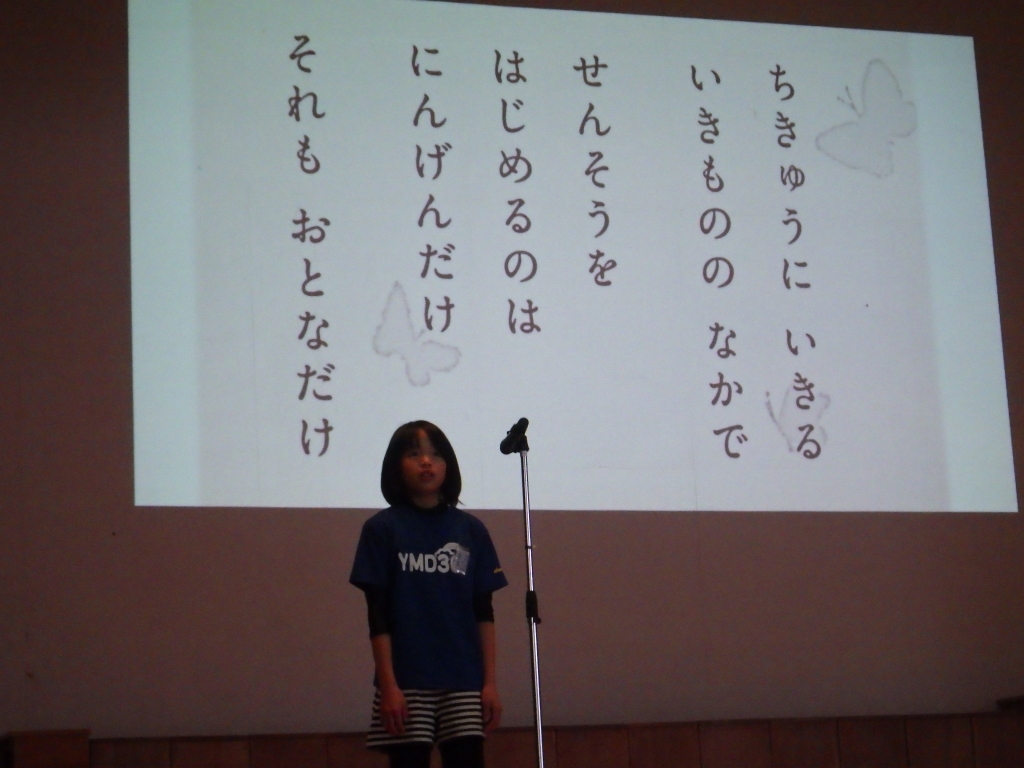 ちきゅうに いきる
いきものの なかで
せんそうを
はじめるのは
にんげんだけ
それも おとなだけ
YMD3